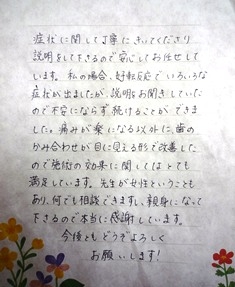 症状に関して丁寧にきいてくださり
説明をして下さるので安心してお任せして
います。私の場合、好転反応でいろいろな
症状が出ましたが、説明をお聞きしていた
ので不安にならず続けることができま
した。痛みが楽になる以外に、歯の
かみ合わせが目に見える形で改善した
ので施術の効果に関してはとても
満足しています。先生が女性ということも
あり、何でも相談できますし、親身になって
下さるので本当に感謝しています。
今後ともどうぞよろしく
お願いします!